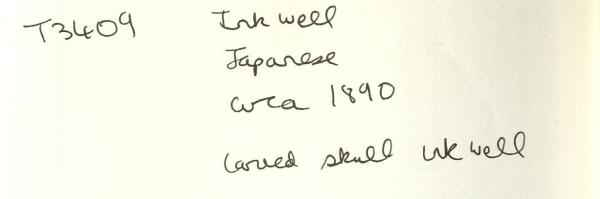 T3409 Ink well
Japanese
circa 1890
Carved skull ink well